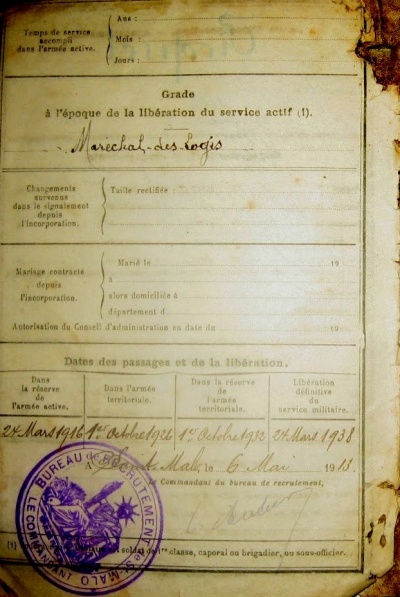 Temps de service
accompli
dans l'armée active.
Ans :
Mois :
Jours :
Grade
à l'époque de la libération du service actif (1).
Maréchal-des-logis
Changements
survenus
dans le signalement
depuis
l'incorporation.
Taille rectifiée :
Mariage contracté
depuis
l'incorporation.
Marié le 19
à
alors domiciliée à
département d
Autorisation du Conseil d'administration en date du 19
Dates des passages et de la libération.
Dans
la réserve
de
l'armée active.
Dans l'armée
territoriale.
Dans la réserve
de l'armée
territoriale.
Libération
définitive
du
service militaire.
24 Mars 1916 1er Octobre 1926 1er Octobre 1932 24 Mars 1938
A St Malo, le 6 Mai 19
Commandant du bureau de recrutement,
BUREAU DE RECRUTEMENT
ST MALO
(1) soldat de 1re classe, caporal ou brigadier, ou sous-officier.